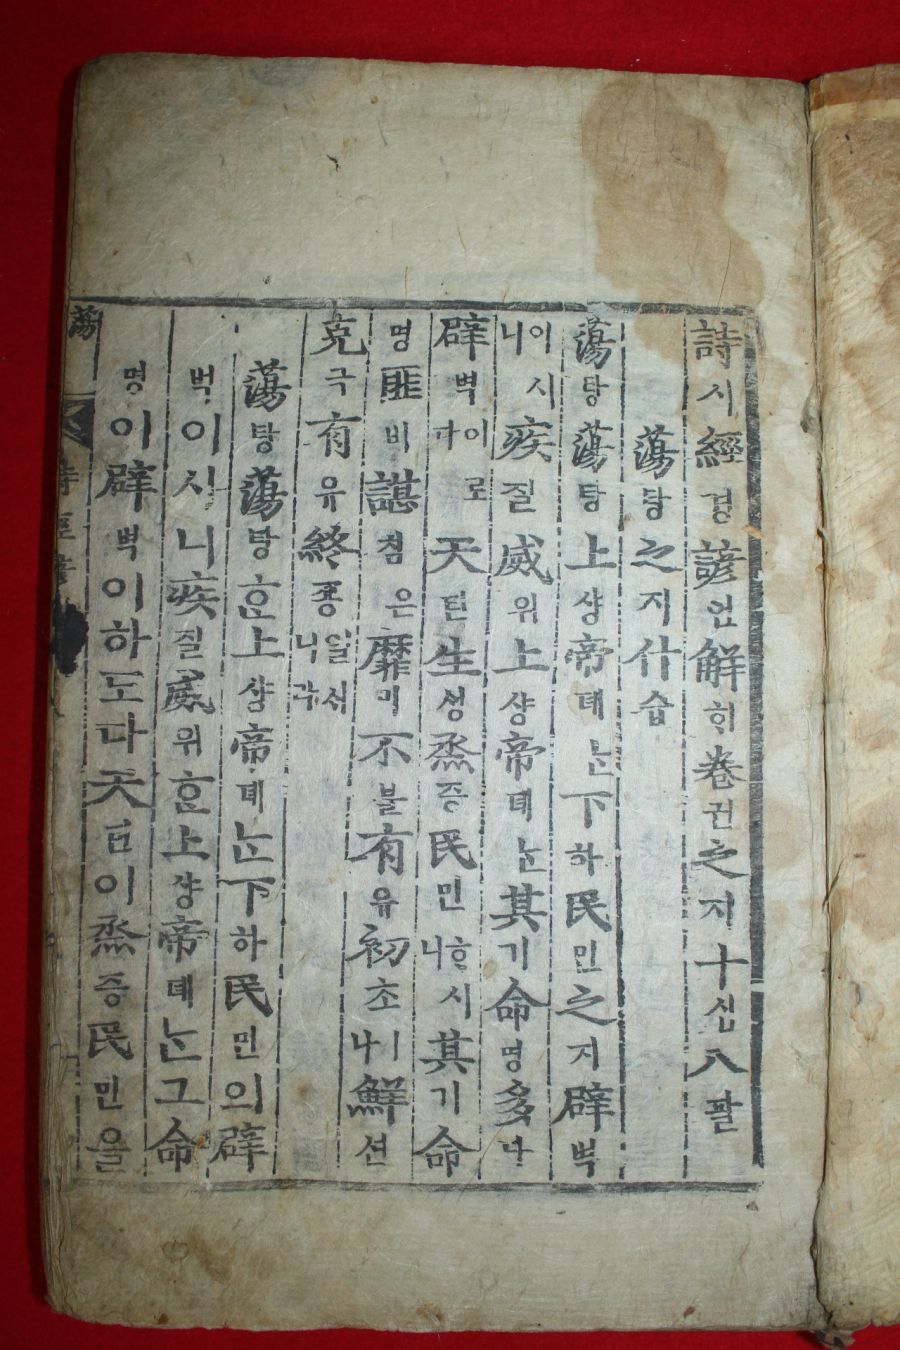 詩시經경諺언解ᄒᆡ卷권之지十십八팔
蕩탕之지什습
蕩탕蕩탕上샹帝뎨ᄂᆞᆫ下하民민之지辟벽
이시니疾질威위上샹帝뎨ᄂᆞᆫ其기命명多다
辟벽이로다天텬生ᄉᆡᆼ烝증民민ᄒᆞ시니其기命
명匪비諶침은靡미不불有유初초ㅣ나鮮션
克극有유終죵일서니라
蕩탕蕩탕ᄒᆞᆫ上샹帝뎨ᄂᆞᆫ下하民민의辟
벽이시니疾질威위ᄒᆞᆫ上샹帝뎨ᄂᆞᆫ그命
명이辟벽이하도다天텬이烝증民민을
蕩
詩經諺